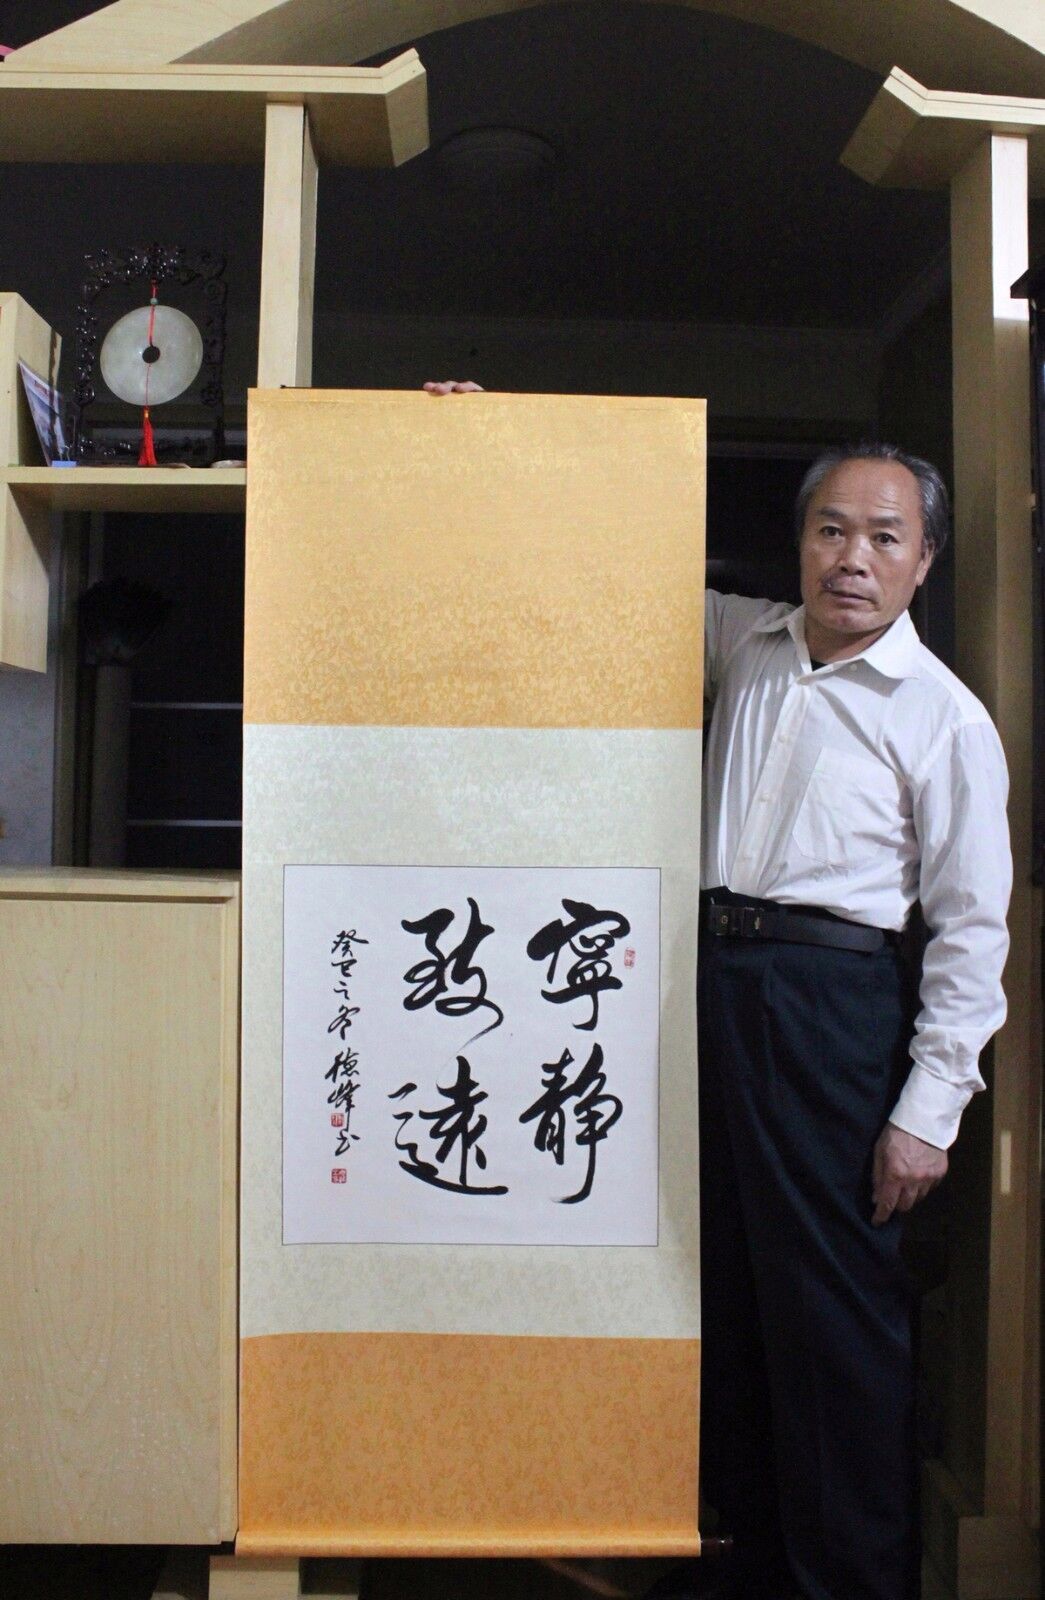 寧靜
致遠
癸巳之冬德峰书